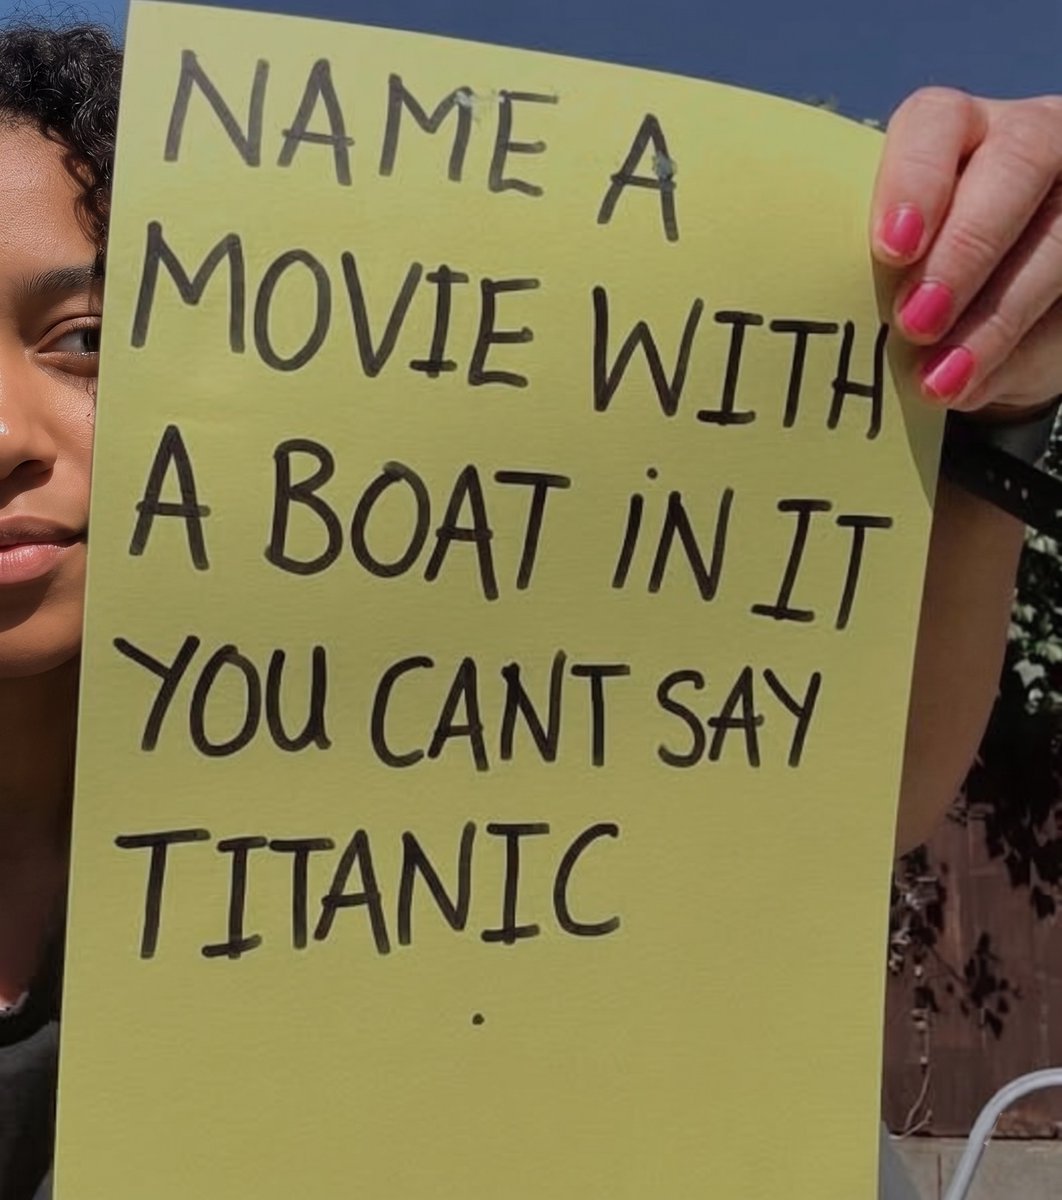 NAME A
MOVIE WITH
A BOAT iN IT
YOU CANT SAY
TITANIC
.